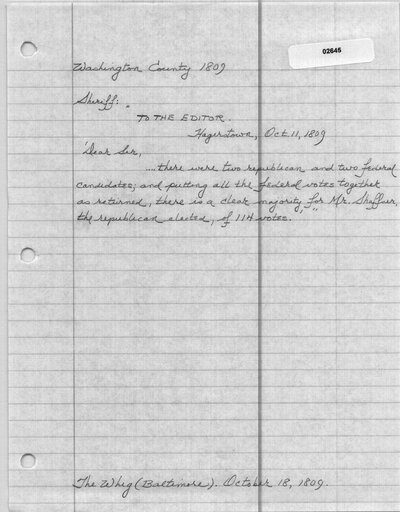 02645
Washington County 1809
Sheriff:
"TO THE EDITOR.
Hagerstown, Oct. 11, 1809
'Dear Sir,
....there were two republican and two federal
candidates; and putting all the federal votes together
as returned, there is a clear majority, for Mr. Shaffner,
the republican elected, of 114 votes.'"
The Whig (Baltimore). October 18, 1809.